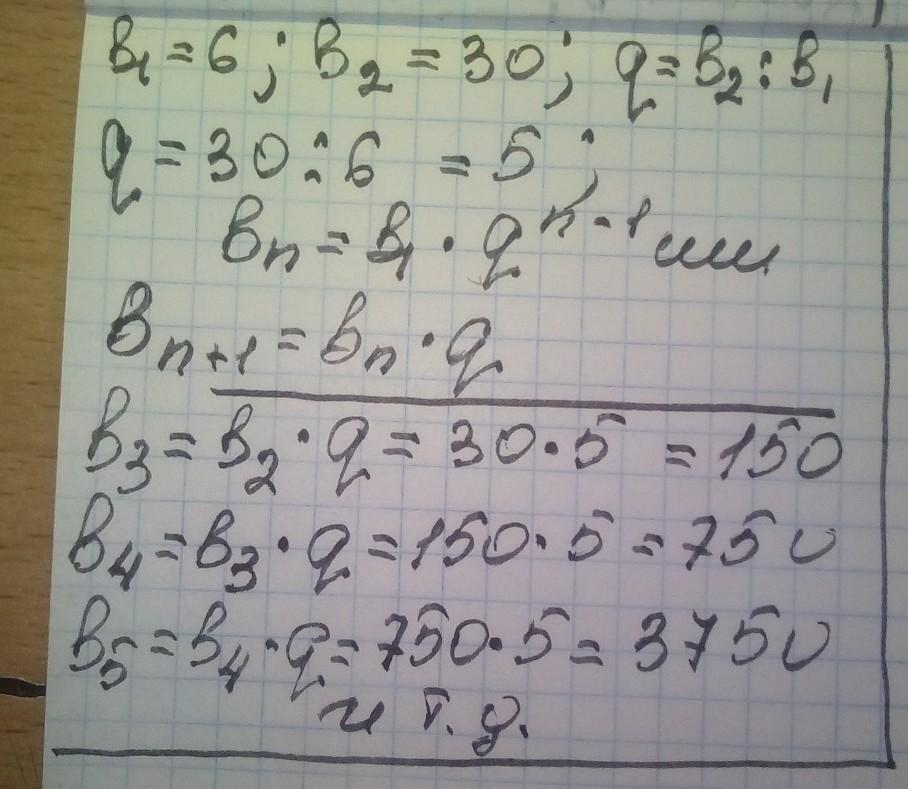 b₁ = 6 ; b₂ = 30 ; q = b₂ : b₁
q = 30 : 6 = 5 ;
bₙ = b₁ · qⁿ⁻¹ или
bₙ₊₁ = bₙ · q
b₃ = b₂ · q = 30 · 5 = 150
b₄ = b₃ · q = 150 · 5 = 750
b₅ = b₄ · q = 750 · 5 = 3750
и т. д.